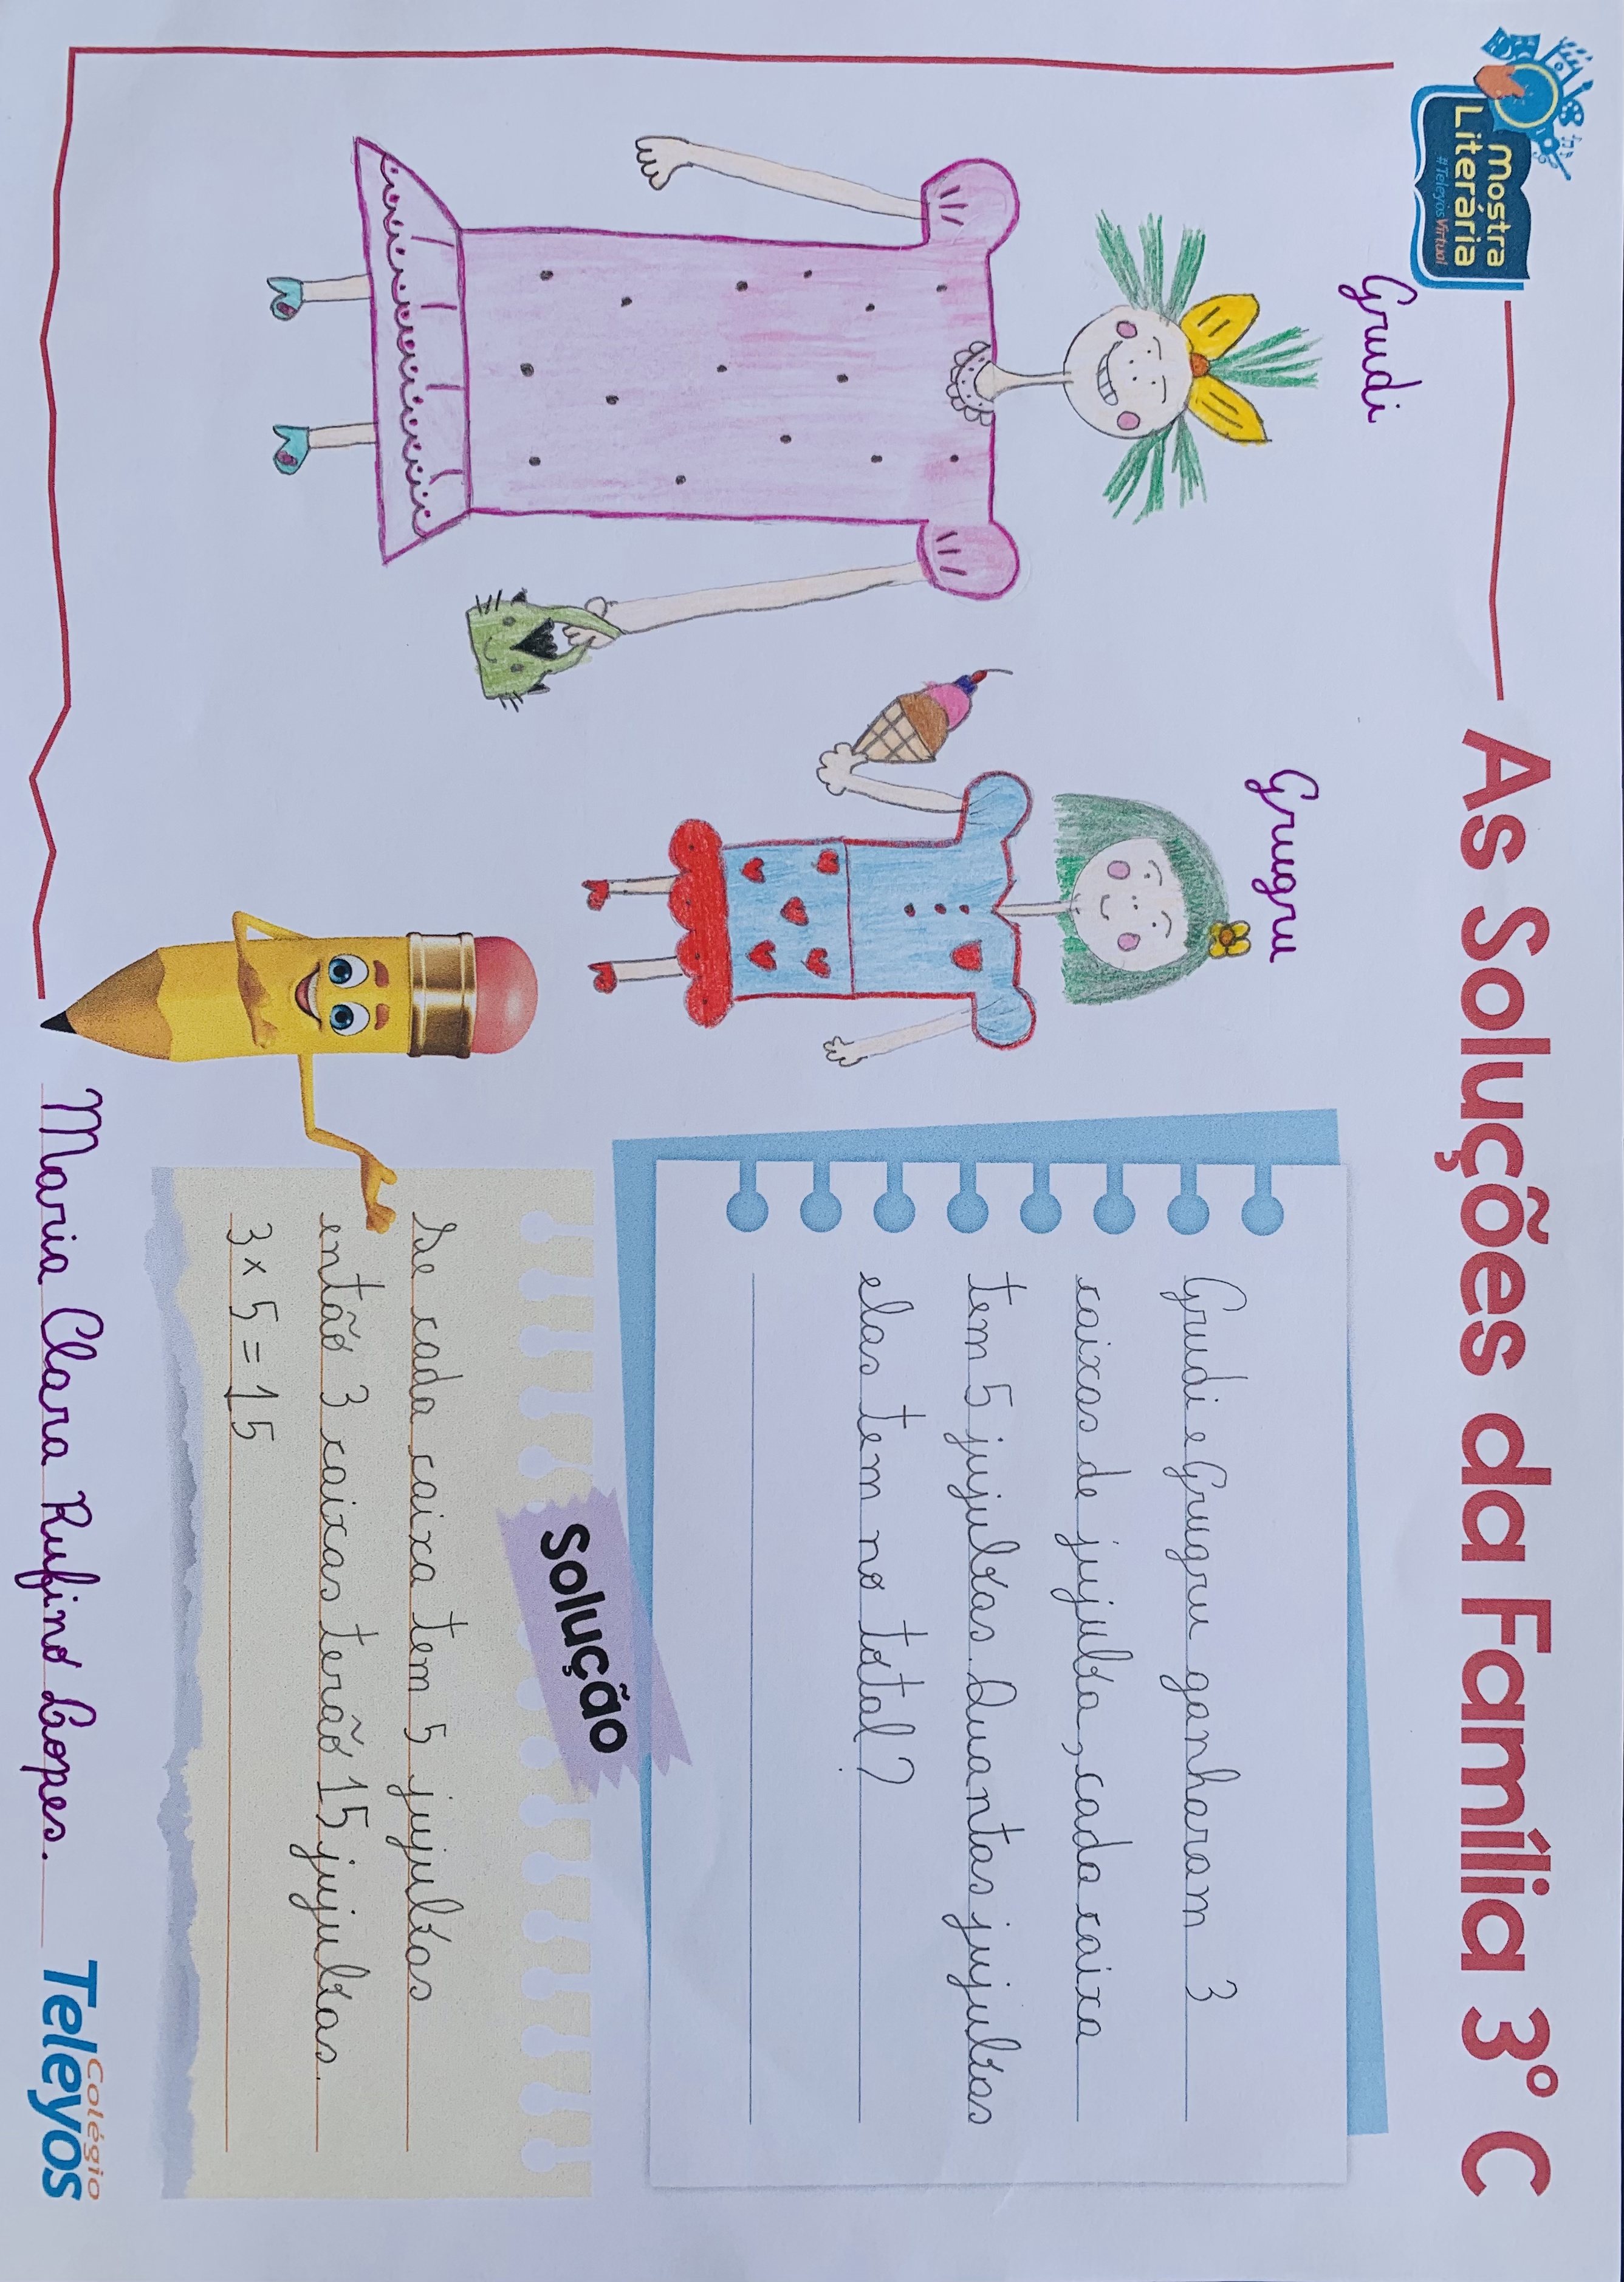 Mostra
Literária
#TeleyosVirtual
As Soluções da Família 3° C
Grudi
Grugru
Grudi e Grugru ganharam 3
caixas de jujuba, cada caixa
tem 5 jujubas. Quantas jujubas
elas tem no total?
Solução
Se cada caixa tem 5 jujubas
então 3 caixas terão 15 jujubas.
3 x 5 = 15
Maria Clara Rufino Lopes.
Colégio
Teleyos